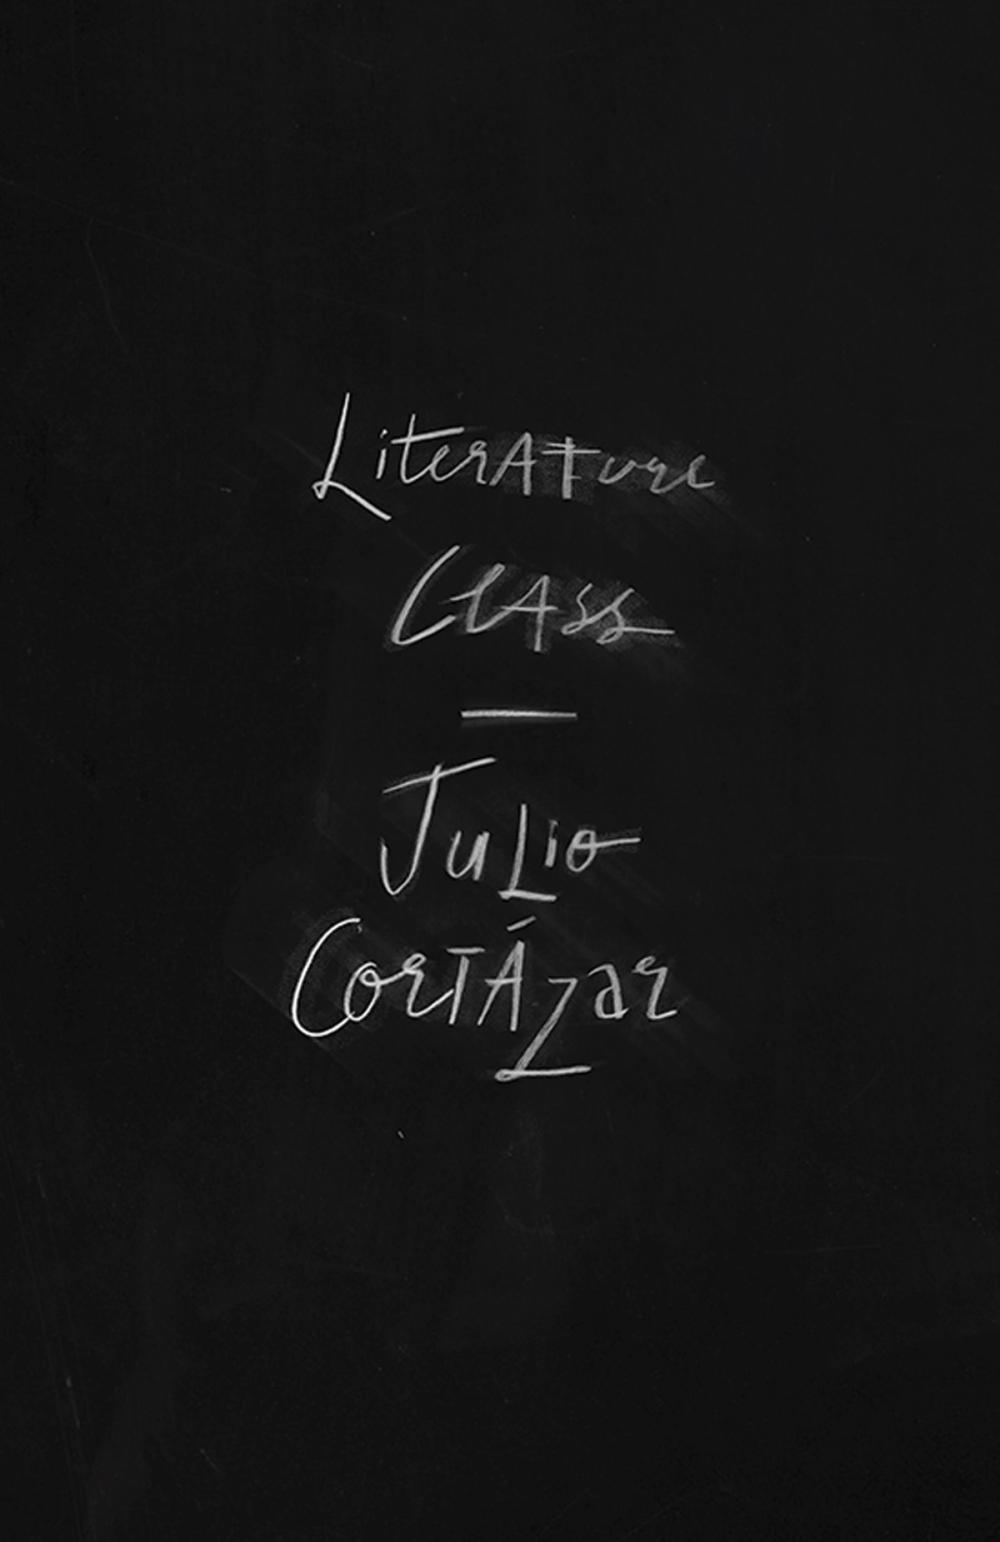 Literature
Class
—
Julio
Cortázar